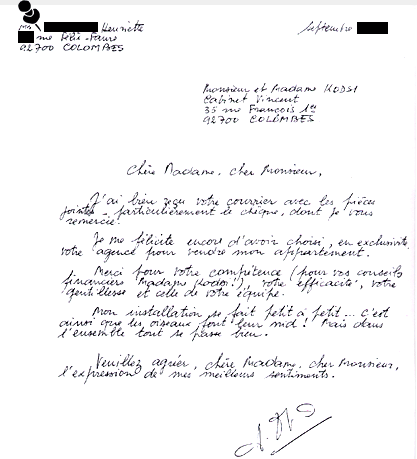 Henriette
Septembre
rue Félix-Faure
92700 COLOMBES
Monsieur et Madame KODSI
Cabinet Vincent
35 rue François 1er
92700 COLOMBES
Chère Madame, cher Monsieur,
J'ai bien reçu votre courrier avec les pièces
jointes, particulièrement le chèque, dont je vous
remercie.
Je me félicite encore d'avoir choisi, en exclusivité
votre agence pour vendre mon appartement.
Merci pour votre compétence (pour vos conseils
financiers Madame Kodsi!), votre efficacité, votre
gentillesse et celle de votre équipe.
Mon installation se fait petit à petit... c'est
ainsi que les oiseaux font leur nid! Mais dans
l'ensemble tout se passe bien.
Veuillez agréer, chère Madame, cher Monsieur,
l'expression de mes meilleurs sentiments.